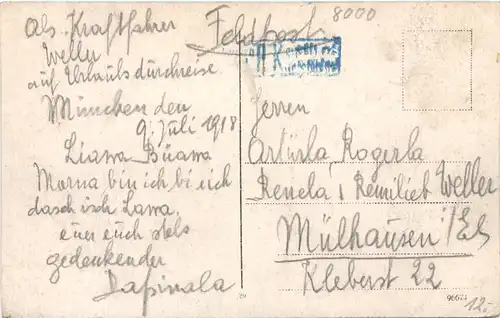 Abs. Kraftfahrer
Weller
auf Urlaubsdurchreise
München den
9. Juli 1918
Liawa Büawa
Morna bin ich bi eich
dasch isch Lawa.
euer euch stets
gedenkender
Papinala
Feldpost
8000
Herren
Artürla, Rogerla
Renela, Remilieb Weller
Mülhausen i/Els
Kleberst 22
12.-